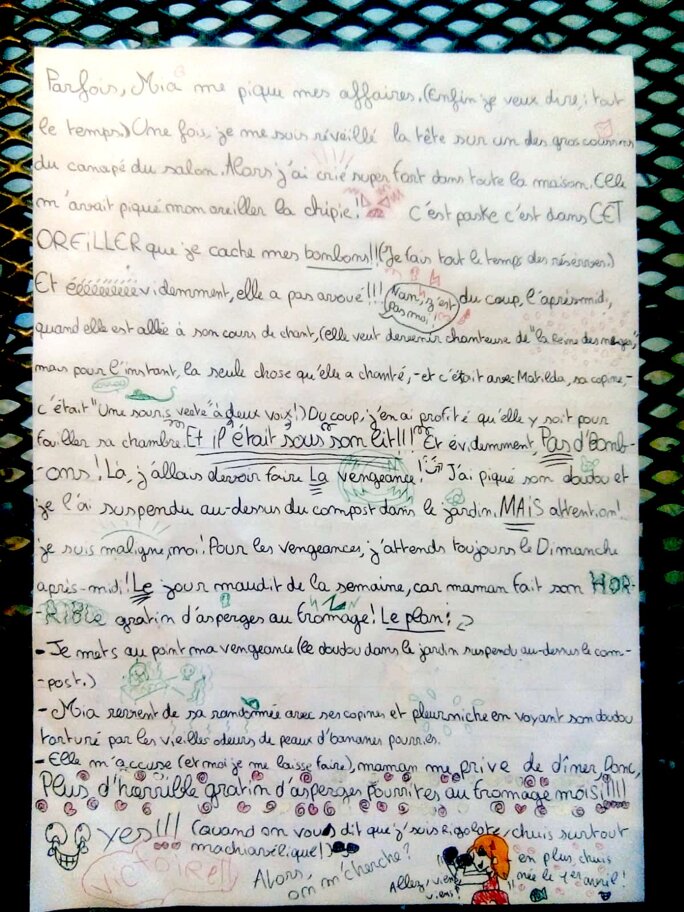 Parfois, Mia me pique mes affaires. (Enfin je veux dire : tout
le temps.) Une fois, je me suis réveillé la tête sur un des gros coussins
du canapé du salon. Alors j'ai crié super fort dans toute la maison. Elle
m'avait piqué mon oreiller la chipie! C'est paske c'est dans CET
OREILLER que je cache mes bonbons!! (Je fais tout le temps des réserves.)
Et éééééééévidemment, elle a pas avoué!!! Nan, z'est pas moi! du coup, l'après-midi,
quand elle est allée à son cours de chant, (elle veut devenir chanteuse de "la reine des neiges",
mais pour l'instant, la seule chose qu'elle a chanté, - et c'était avec Matilda, sa copine, -
c'était "Une souris verte" à deux voix!) Du coup, j'en ai profité qu'elle y soit pour
fouiller sa chambre. Et il était sous son lit!!! Et évidemment, Pas d'Bonb-
-ons! Là, j'allais devoir faire La vengeance! J'ai piqué son doudou et
je l'ai suspendu au-dessus du compost dans le jardin. MAIS attention!
je suis maligne, moi! Pour les vengeances, j'attends toujours le Dimanche
après-midi! Le jour maudit de la semaine, car maman fait son HOR-
-RIBLE gratin d'asperges au fromage! Le plan:
- Je mets au point ma vengeance (le doudou dans le jardin suspendu au-dessus le com-
-post.)
- Mia revient de sa randonnée avec ses copines et pleurniche en voyant son doudou
torturé par les vieilles odeurs de peaux d'bananes pourries.
- Elle m'accuse (et moi je me laisse faire), maman me prive de dîner, Donc,
Plus d'horrible gratin d'asperges pourrites au fromage moisi!!!!!
yes!!! (Quand on vous dit que j'suis rigolote, chuis surtout
machiavélique!)
Victoire!!
Alors, on m'cherche?
Allez, viens viens!
en plus, chuis
née le 1er avril!